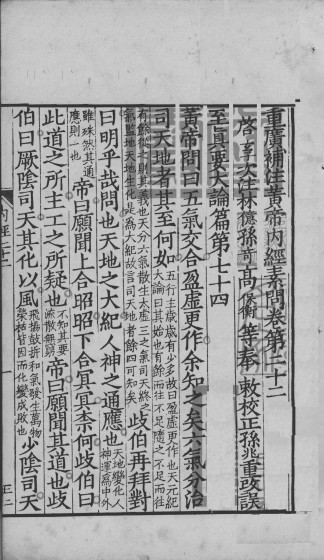 重廣補注黃帝內經素問卷第二十二
啓玄次注林億孫奇高保衡等奉敕校正孫兆重改誤
至眞要大論篇第七十四
黃帝問曰五氣交合盈虛更作余知之矣六氣分治
司天地者其至何如五行主歲歲有少多故曰盈虛更作也天元紀大論曰其始也有餘而往不足隨之不足而往
有餘從之則其義也天分六氣散生太虛三之氣司天終之氣監地天地生化是爲大紀故言司天地者餘四可知矣岐伯再拜對
曰明乎哉問也天地之大紀人神之通應也天地變化人神運爲中外
雖殊然其通應則一也帝曰願聞上合昭昭下合冥冥柰何岐伯曰
此道之所主工之所疑也不知其要流散無窮帝曰願聞其道也岐
伯曰厥陰司天其化以風飛揚鼓拆和氣發生萬物榮枯皆因而化變成敗也少陰司天